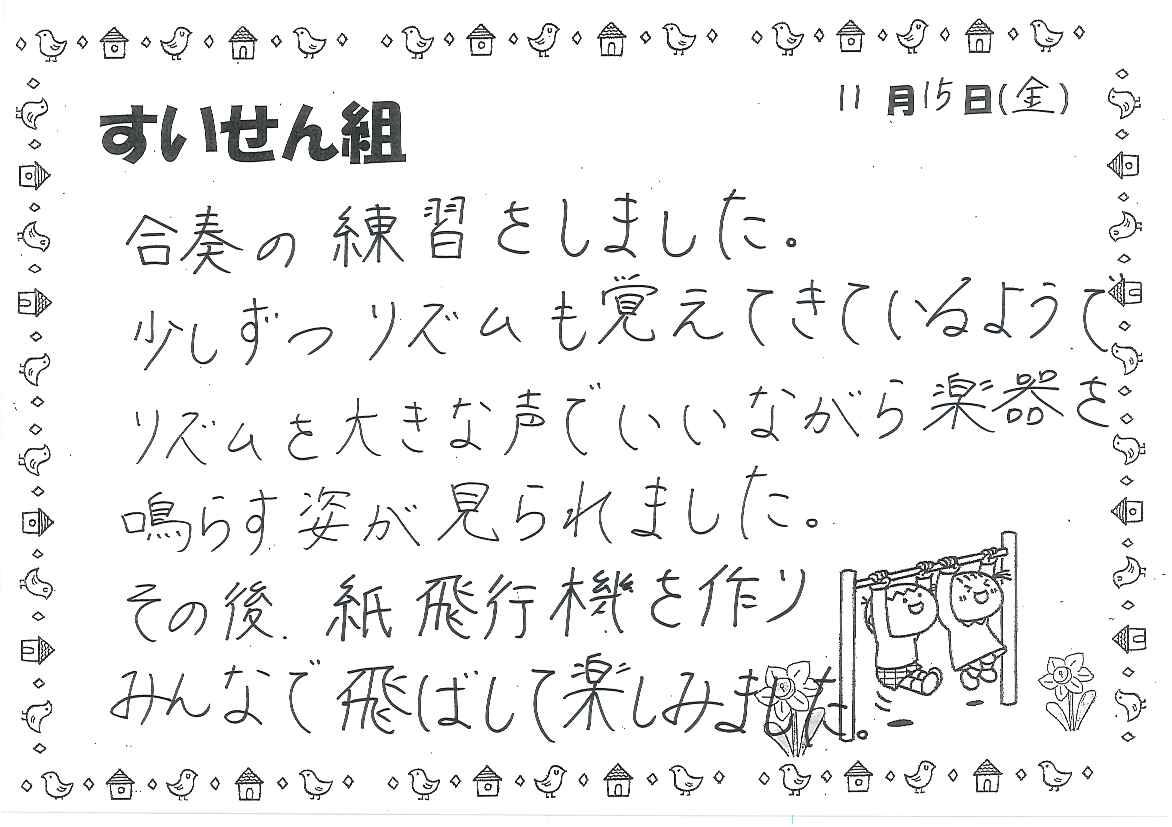 11月15日(金)
すいせん組
合奏の練習をしました。
少しずつリズムも覚えてきているようで
リズムを大きな声でいいながら楽器を
鳴らす姿が見られました。
その後、紙飛行機を作り
みんなで飛ばして楽しみました。